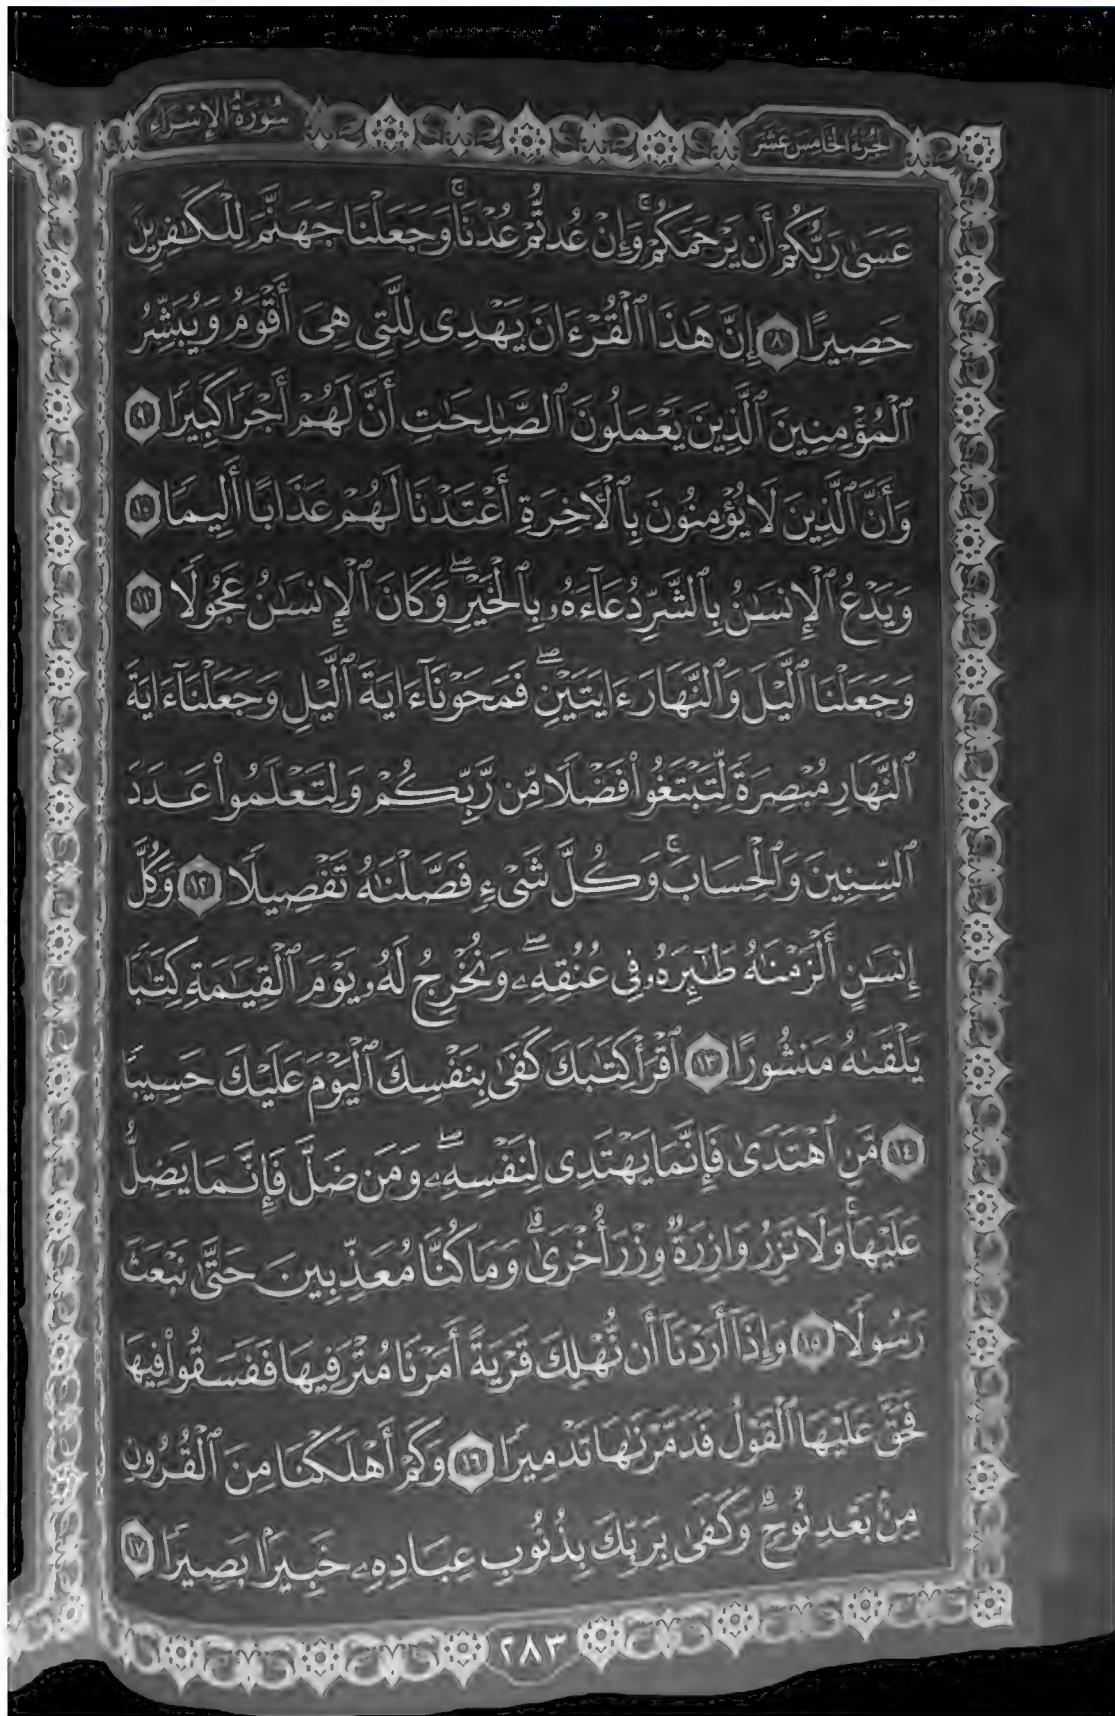 الجزء الخامس عشر
سورة الإسراء
عَسَىٰ رَبُّكُمْ أَن يَرْحَمَكُمْ ۚ وَإِنْ عُدتُّمْ عُدْنَا ۚ وَجَعَلْنَا جَهَنَّمَ لِلْكَـٰفِرِينَ
حَصِيرًا ٨ إِنَّ هَـٰذَا ٱلْقُرْءَانَ يَهْدِى لِلَّتِى هِىَ أَقْوَمُ وَيُبَشِّرُ
ٱلْمُؤْمِنِينَ ٱلَّذِينَ يَعْمَلُونَ ٱلصَّـٰلِحَـٰتِ أَنَّ لَهُمْ أَجْرًا كَبِيرًا ٩
وَأَنَّ ٱلَّذِينَ لَا يُؤْمِنُونَ بِٱلْـَٔاخِرَةِ أَعْتَدْنَا لَهُمْ عَذَابًا أَلِيمًا ١٠
وَيَدْعُ ٱلْإِنسَـٰنُ بِٱلشَّرِّ دُعَآءَهُۥ بِٱلْخَيْرِ ۖ وَكَانَ ٱلْإِنسَـٰنُ عَجُولًا ١١
وَجَعَلْنَا ٱلَّيْلَ وَٱلنَّهَارَ ءَايَتَيْنِ ۖ فَمَحَوْنَآ ءَايَةَ ٱلَّيْلِ وَجَعَلْنَآ ءَايَةَ
ٱلنَّهَارِ مُبْصِرَةً لِّتَبْتَغُوا۟ فَضْلًا مِّن رَّبِّكُمْ وَلِتَعْلَمُوا۟ عَدَدَ
ٱلسِّنِينَ وَٱلْحِسَابَ ۚ وَكُلَّ شَىْءٍ فَصَّلْنَـٰهُ تَفْصِيلًا ١٢ وَكُلَّ
إِنسَـٰنٍ أَلْزَمْنَـٰهُ طَـٰٓئِرَهُۥ فِى عُنُقِهِۦ ۖ وَنُخْرِجُ لَهُۥ يَوْمَ ٱلْقِيَـٰمَةِ كِتَـٰبًا
يَلْقَىٰهُ مَنشُورًا ١٣ ٱقْرَأْ كِتَـٰبَكَ كَفَىٰ بِنَفْسِكَ ٱلْيَوْمَ عَلَيْكَ حَسِيبًا
١٤ مَّنِ ٱهْتَدَىٰ فَإِنَّمَا يَهْتَدِى لِنَفْسِهِۦ ۖ وَمَن ضَلَّ فَإِنَّمَا يَضِلُّ
عَلَيْهَا ۚ وَلَا تَزِرُ وَازِرَةٌ وِزْرَ أُخْرَىٰ ۗ وَمَا كُنَّا مُعَذِّبِينَ حَتَّىٰ نَبْعَثَ
رَسُولًا ١٥ وَإِذَآ أَرَدْنَآ أَن نُّهْلِكَ قَرْيَةً أَمَرْنَا مُتْرَفِيهَا فَفَسَقُوا۟ فِيهَا
فَحَقَّ عَلَيْهَا ٱلْقَوْلُ فَدَمَّرْنَـٰهَا تَدْمِيرًا ١٦ وَكَمْ أَهْلَكْنَا مِنَ ٱلْقُرُونِ
مِنۢ بَعْدِ نُوحٍ ۗ وَكَفَىٰ بِرَبِّكَ بِذُنُوبِ عِبَادِهِۦ خَبِيرًۢا بَصِيرًا ١٧
٢٨٣